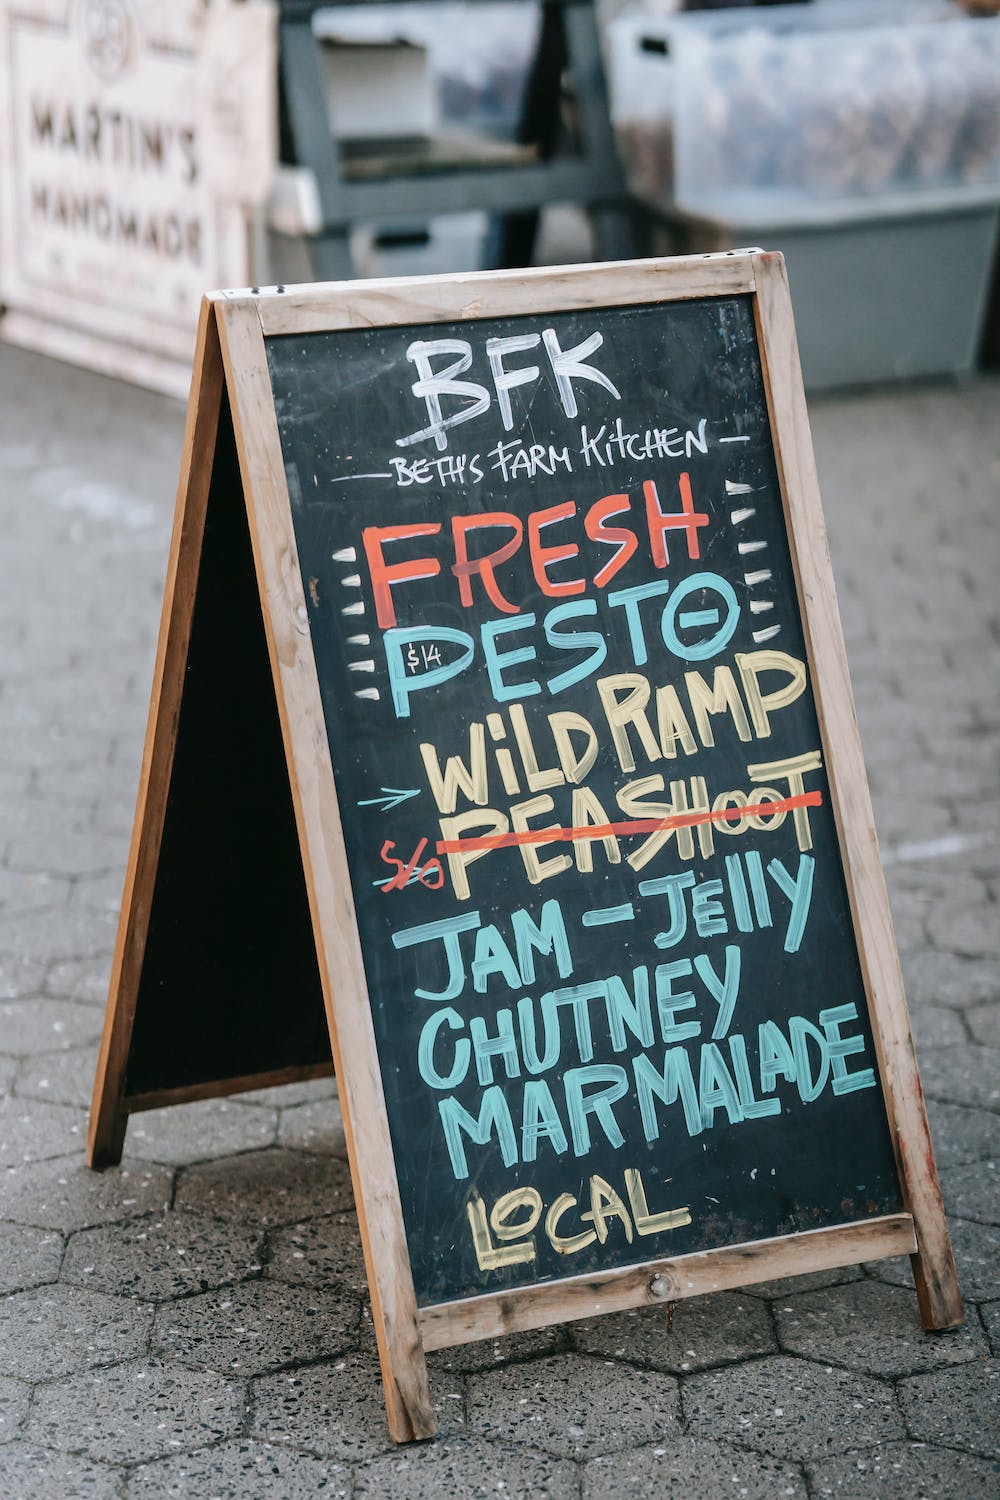 MARTIN'S
HANDMADE
BFK
BETH'S FARM KiTCHEN
FRESH
PESTO
$14
WiLD RAMP
S/O PEA SHOOT
JAM - JElly
CHUTNEY
MARMALADE
LOCAL